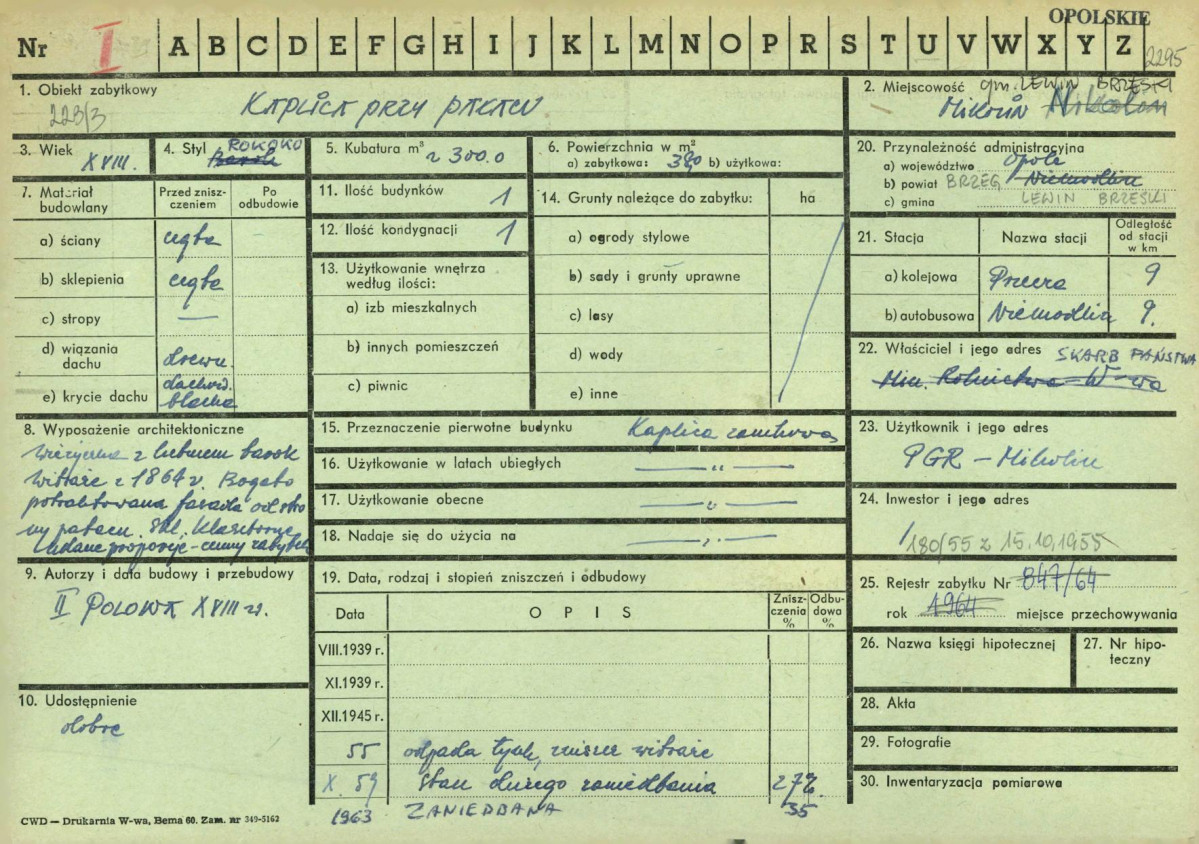 OPOLSKIE
Nr I A B C D E F G H I J K L M N O P R S T U V W X Y Z
2295
1. Obiekt zabytkowy
223/3
KAPLICA PRZY PAŁACU
2. Miejscowość gm. LEWIN BRZESKI
Mikolin Nikolin
3. Wiek XVIII.
4. Styl ROKOKO
Barok
5. Kubatura m³ ~ 300.0
6. Powierzchnia w m²
a) zabytkowa: 380 b) użytkowa:
20. Przynależność administracyjna
a) województwo Opole
b) powiat BRZEG Niemodlin
c) gmina LEWIN BRZESKI
7. Materiał budowlany
Przed zniszczeniem
Po odbudowie
a) ściany cegła
b) sklepienia cegła
c) stropy —
d) wiązania dachu drewn.
e) krycie dachu dachów. blacha
11. Ilość budynków 1
12. Ilość kondygnacji 1
13. Użytkowanie wnętrza według ilości:
a) izb mieszkalnych
b) innych pomieszczeń
c) piwnic
14. Grunty należące do zabytku: ha
a) ogrody stylowe
b) sady i grunty uprawne
c) lasy
d) wody
e) inne
21. Stacja
Nazwa stacji
Odległość od stacji w km
a) kolejowa 9
b) autobusowa Niemodlin 9.
22. Właściciel i jego adres SKARB PAŃSTWA
Min. Rolnictwa W-wa
8. Wyposażenie architektoniczne
wieżyczka z hełmem barok
witraże z 1864 r. Bogato
potraktowana fasada od stro
ny pałacu. Skl. klasztorne
Udane proporcje - cenny zabytek
15. Przeznaczenie pierwotne budynku Kaplica zamkowa
16. Użytkowanie w latach ubiegłych — „ —
17. Użytkowanie obecne — „ —
18. Nadaje się do użycia na — „ —
23. Użytkownik i jego adres
PGR – Mikolin
24. Inwestor i jego adres
180/55 z 15.10.1955
9. Autorzy i data budowy i przebudowy
II POŁOWA XVIII w.
19. Data, rodzaj i stopień zniszczeń i odbudowy
Data
OPIS
Zniszczenia %
Odbudowa %
VIII.1939 r.
XI.1939 r.
XII.1945 r.
55 odpada tynk, zniszcz. witraże
X. 59 Stan dużego zaniedbania 27%
1963 ZANIEDBANA 35
25. Rejestr zabytku Nr 847/64
rok 1964 miejsce przechowywania
26. Nazwa księgi hipotecznej
27. Nr hipoteczny
28. Akta
29. Fotografie
30. Inwentaryzacja pomiarowa
10. Udostępnienie
dobre
CWD — Drukarnia W-wa, Bema 60. Zam. nr 349-5162